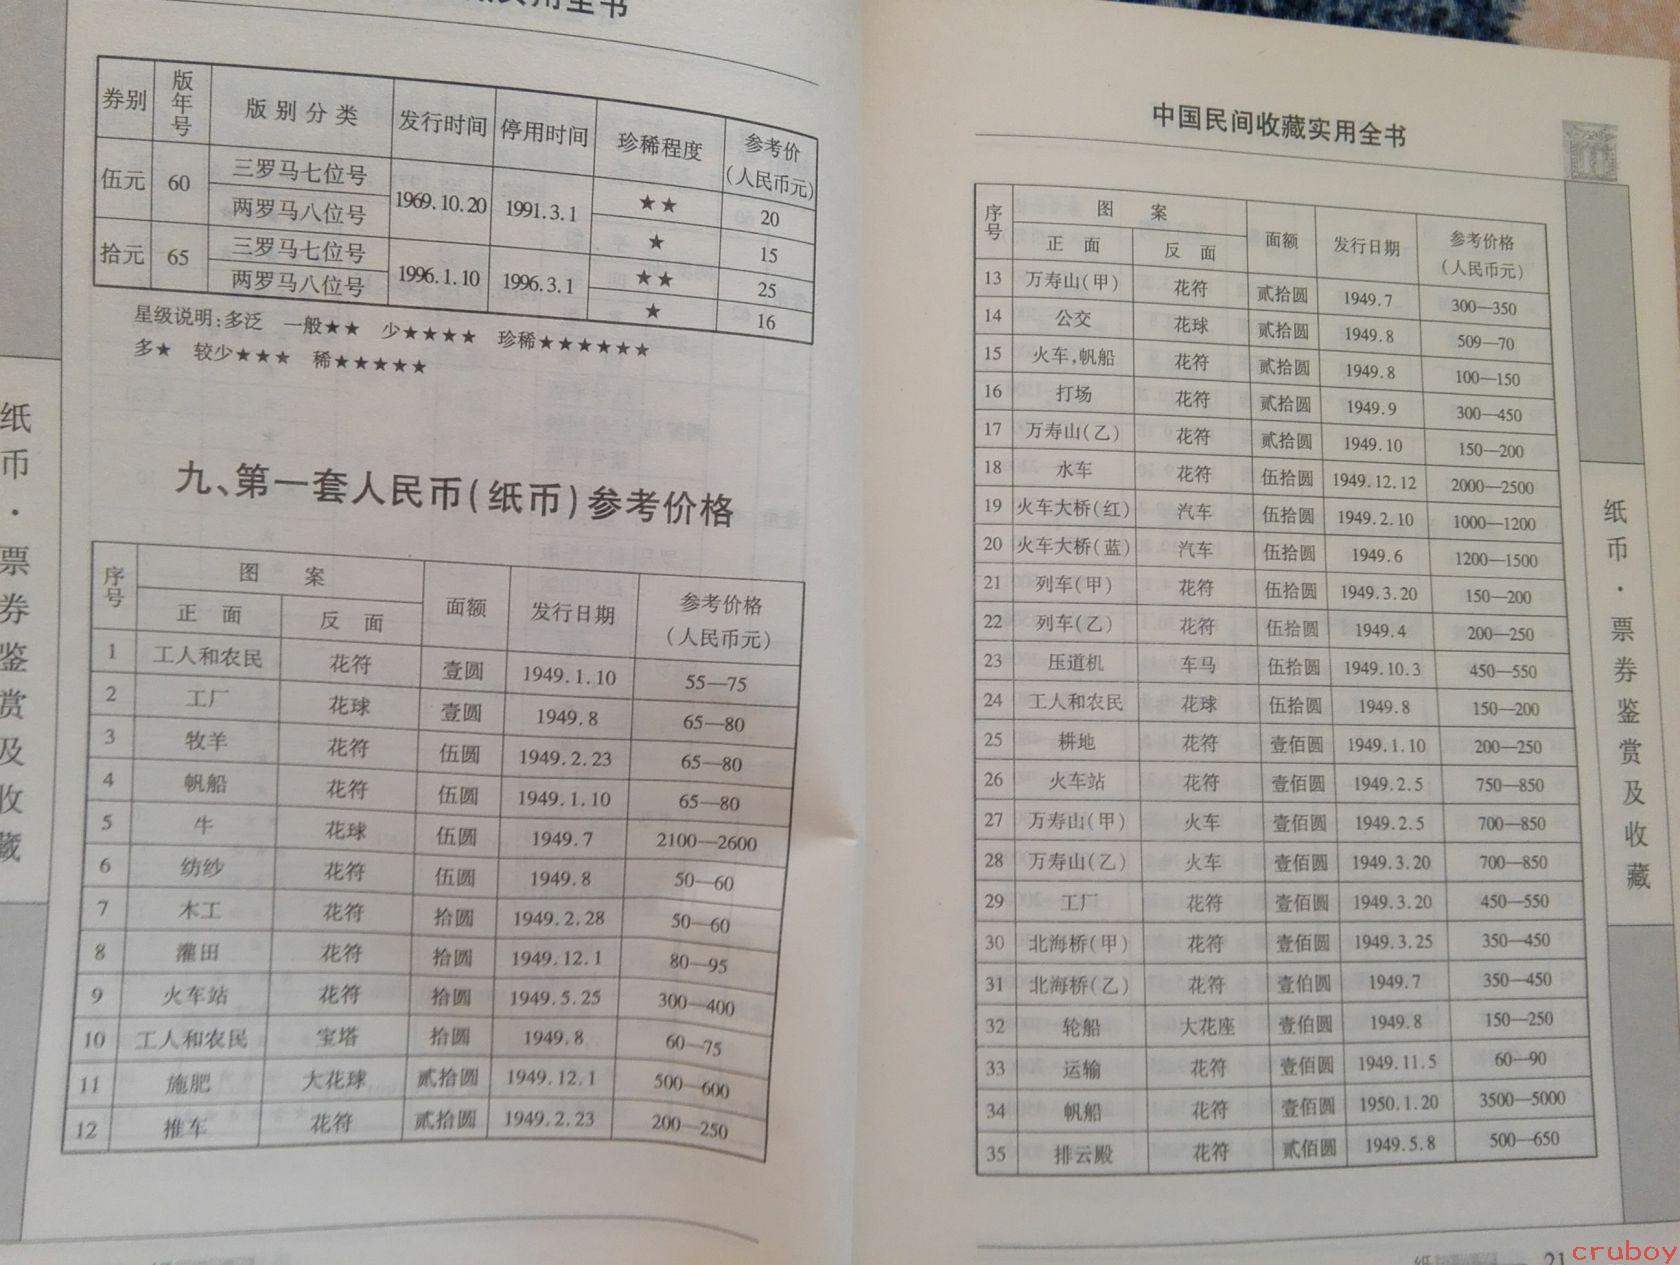 实用全书
券别 版年号 版别分类 发行时间 停用时间 珍稀程度 参考价(人民币元)
伍元 60 三罗马七位号 1969.10.20 1991.3.1 ★★ 20
两罗马八位号 ★ 15
拾元 65 三罗马七位号 1996.1.10 1996.3.1 ★★ 25
两罗马八位号 ★ 16
星级说明:多泛 一般★★ 少★★★★ 珍稀★★★★★★
多★ 较少★★★ 稀★★★★★
九、第一套人民币(纸币)参考价格
序号 图案 面额 发行日期 参考价格(人民币元)
正面 反面
1 工人和农民 花符 壹圆 1949.1.10 55—75
2 工厂 花球 壹圆 1949.8 65—80
3 牧羊 花符 伍圆 1949.2.23 65—80
4 帆船 花符 伍圆 1949.1.10 65—80
5 牛 花球 伍圆 1949.7 2100—2600
6 纺纱 花符 伍圆 1949.8 50—60
7 木工 花符 拾圆 1949.2.28 50—60
8 灌田 花符 拾圆 1949.12.1 80—95
9 火车站 花符 拾圆 1949.5.25 300—400
10 工人和农民 宝塔 拾圆 1949.8 60—75
11 施肥 大花球 贰拾圆 1949.12.1 500—600
12 推车 花符 贰拾圆 1949.2.23 200—250
纸币·票券鉴赏及收藏
中国民间收藏实用全书
序号 图案 面额 发行日期 参考价格(人民币元)
正面 反面
13 万寿山(甲) 花符 贰拾圆 1949.7 300—350
14 公交 花球 贰拾圆 1949.8 509—70
15 火车,帆船 花符 贰拾圆 1949.8 100—150
16 打场 花符 贰拾圆 1949.9 300—450
17 万寿山(乙) 花符 贰拾圆 1949.10 150—200
18 水车 花符 伍拾圆 1949.12.12 2000—2500
19 火车大桥(红) 汽车 伍拾圆 1949.2.10 1000—1200
20 火车大桥(蓝) 汽车 伍拾圆 1949.6 1200—1500
21 列车(甲) 花符 伍拾圆 1949.3.20 150—200
22 列车(乙) 花符 伍拾圆 1949.4 200—250
23 压道机 车马 伍拾圆 1949.10.3 450—550
24 工人和农民 花球 伍拾圆 1949.8 150—200
25 耕地 花符 壹佰圆 1949.1.10 200—250
26 火车站 花符 壹佰圆 1949.2.5 750—850
27 万寿山(甲) 火车 壹佰圆 1949.2.5 700—850
28 万寿山(乙) 火车 壹佰圆 1949.3.20 700—850
29 工厂 花符 壹佰圆 1949.3.20 450—550
30 北海桥(甲) 花符 壹佰圆 1949.3.25 350—450
31 北海桥(乙) 花符 壹伯圆 1949.7 350—450
32 轮船 大花座 壹伯圆 1949.8 150—250
33 运输 花符 壹佰圆 1949.11.5 60—90
34 帆船 花符 壹佰圆 1950.1.20 3500—5000
35 排云殿 花符 贰佰圆 1949.5.8 500—650
纸币·票券鉴赏及收藏
21
cruboy